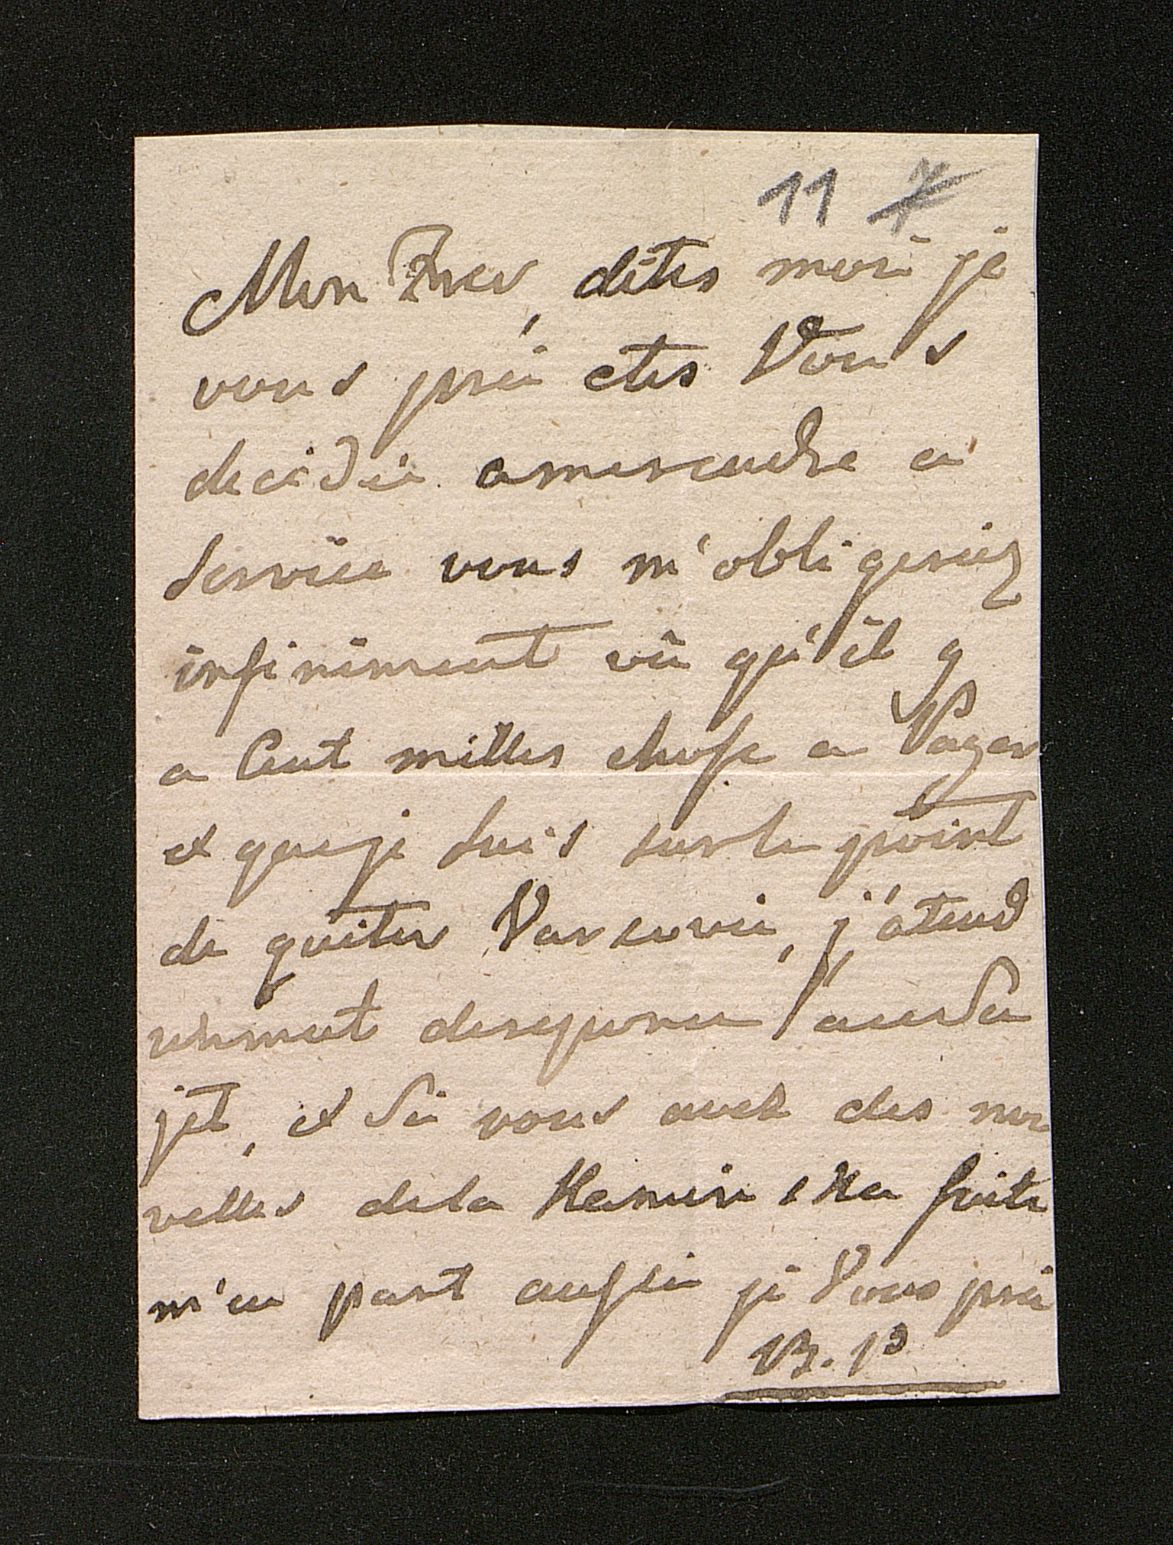 11 7
Mon Frer, dites moi je
vous prie etes Vous
decidée amerendre ce
Service vous m'obligeriez
infiniment vû qu'il y
a Cent milles chose a Payer
et que je suis surle point
de quiter Varsovie, j'atend
reponce
jet, et Si vous avez des nou
velles dela faite
m'en part aussi je Vous prie
B. P